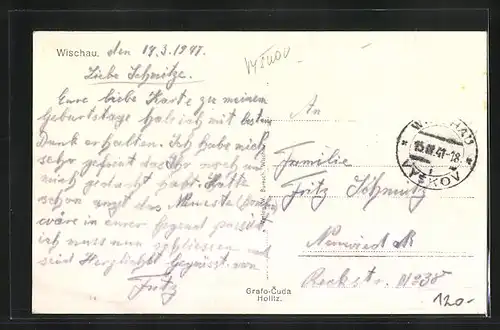 Wischau, den 14.3.1941.
Vyškov
Liebe Schmitz.
Eure liebe Karte zu meinem
Geburtstage hab ich mit bestem
Dank erhalten. Ich habe mich
sehr gefreut das Ihr noch an
mich gedacht habt. Hatte
schon angst das
wäre in eurer Gegend passiert.
ich muss nun schliessen und
seid Herzlichst Gegrüsst von
Fritz
An
Familie
Fritz Schmitz
Neuwied a R
WISCHAU
15.III.41-18
VYŠKOV
Grafo-Čuda
Holitz.
120.-